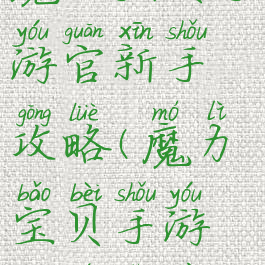 yóu guān xīn shǒu
游官新手
gōng lüè mó lì
攻略(魔力
bǎo bèi shǒu yóu
宝贝手游